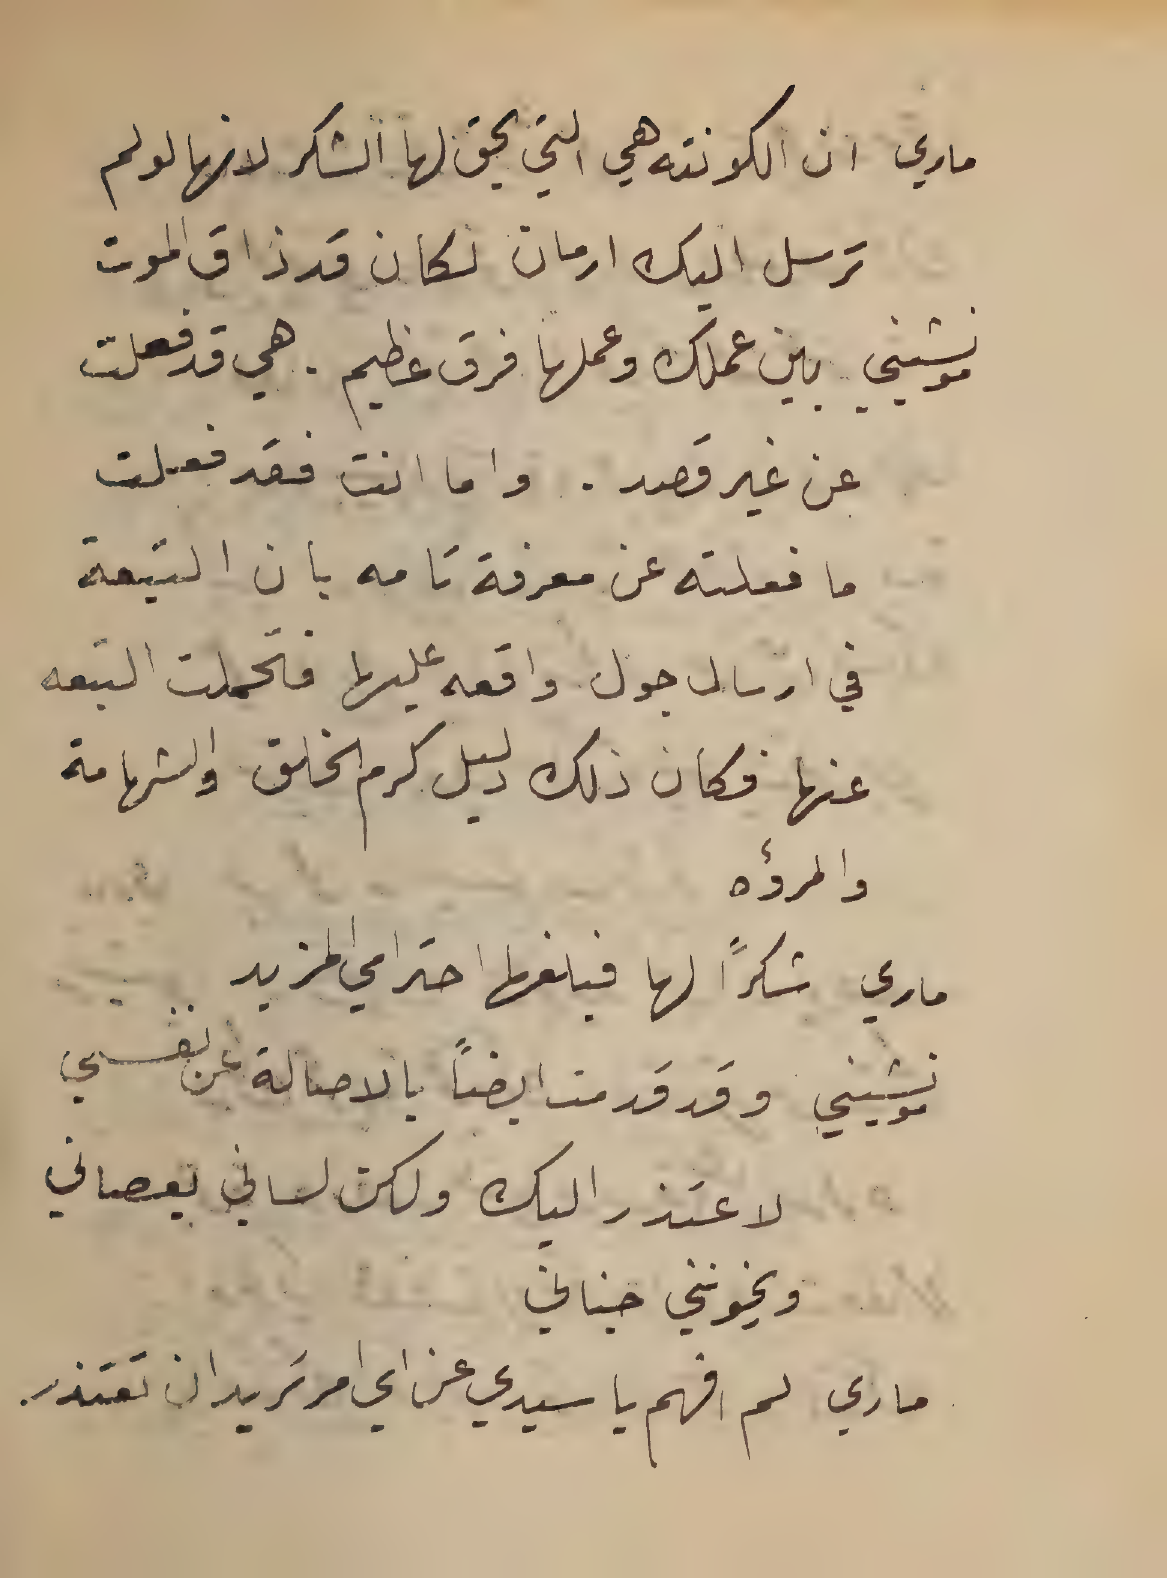 ماري ان الكونته هي التي يحق لها الشكر لانها لو لم
ترسل اليك ارمان لكان قد ذاق الموت
مونشيني بين عملك وعملها فرق عظيم . هي قد فعلت
عن غير قصد . واما انت فقد فعلت
ما فعلته عن معرفة تامه بان التبعة
في ارسال جول واقعه عليها فتحملت التبعه
عنها فكان ذلك دليل كرم الخلق والشهامة
والمرؤه
ماري شكراً لها فبلغها احترامي المزيد
مونشيني وقد قدمت ايضاً بالاصالة عن نفسي
لاعتذر اليك ولكن لساني يعصاني
ويخونني جناني
ماري لم افهم يا سيدي عن اي امر تريد ان تعتذر.